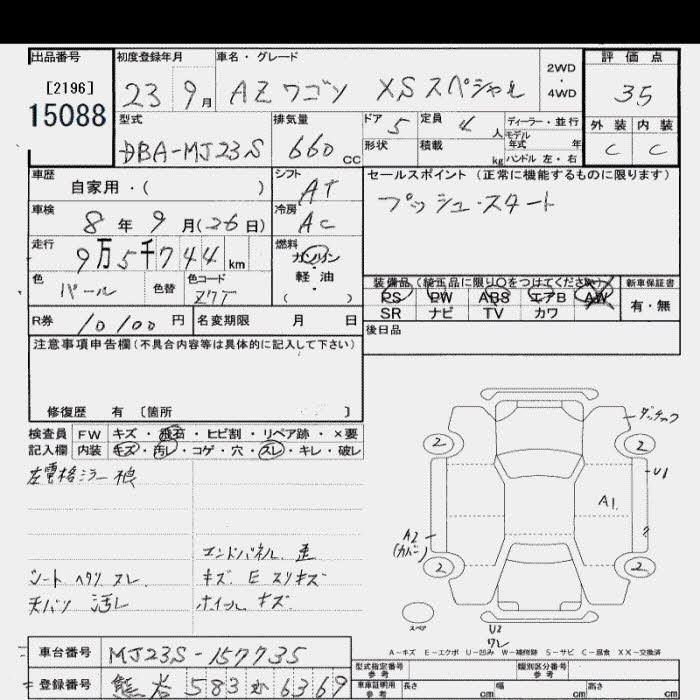 出品番号 初度登録年月 車名・グレード 評価点
[2196] 23 9月 AZワゴン XSスペシャル 2WD・4WD 3.5
15088
型式 排気量 ドア 定員 ディーラー・並行 外装 内装
DBA-MJ23S 660cc 5 4人 モデル年式 年 C C
形状 積載 kg ハンドル 左・右
車歴 シフト セールスポイント (正常に機能するものに限ります)
自家用・( ) AT プッシュ・スタート
車検 冷房
8年9月(26日) AC
走行 燃料
9万5千744km ガソリン・軽油
色 パール 色替 色コード Z7T ( )
装備品 (純正品に限り○をつけてください) 新車保証書
PS PW ABS エアB AW 有・無
SR ナビ TV カワ
R券 10100円 名変期限 月 日 後日品
注意事項申告欄 (不具合内容等は具体的に記入して下さい)
修復歴 有 〔箇所 〕
検査員 FW キズ・飛石・ヒビ割・リペア跡・×要
記入欄 内装 キズ・汚レ・コゲ・穴・スレ・キレ・破レ
左電格ミラー
エンドパネル 歪
シート ヘタリ スレ キズ E スリキズ
天バリ 汚レ ホイール キズ
2 2
U1
A1
A2
(カバー)
2 2
スペア
U2
ワレ
A-キズ E-エクボ U-凹み W-補修跡 S-サビ C-腐食 XX-交換済
車台番号 MJ23S-157735
型式指定番号 参考 類別区分番号 参考
登録番号 583 か 6369
車庫証明用 参考 長さ cm 幅 cm 高さ cm